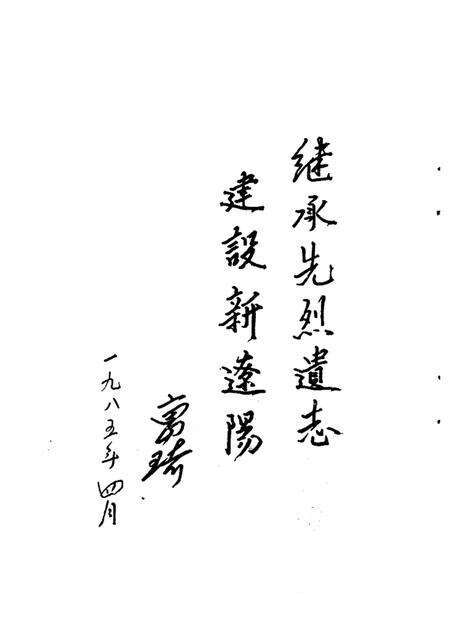 继承先烈遺志
建設新遼陽
富琦
一九八五年四月